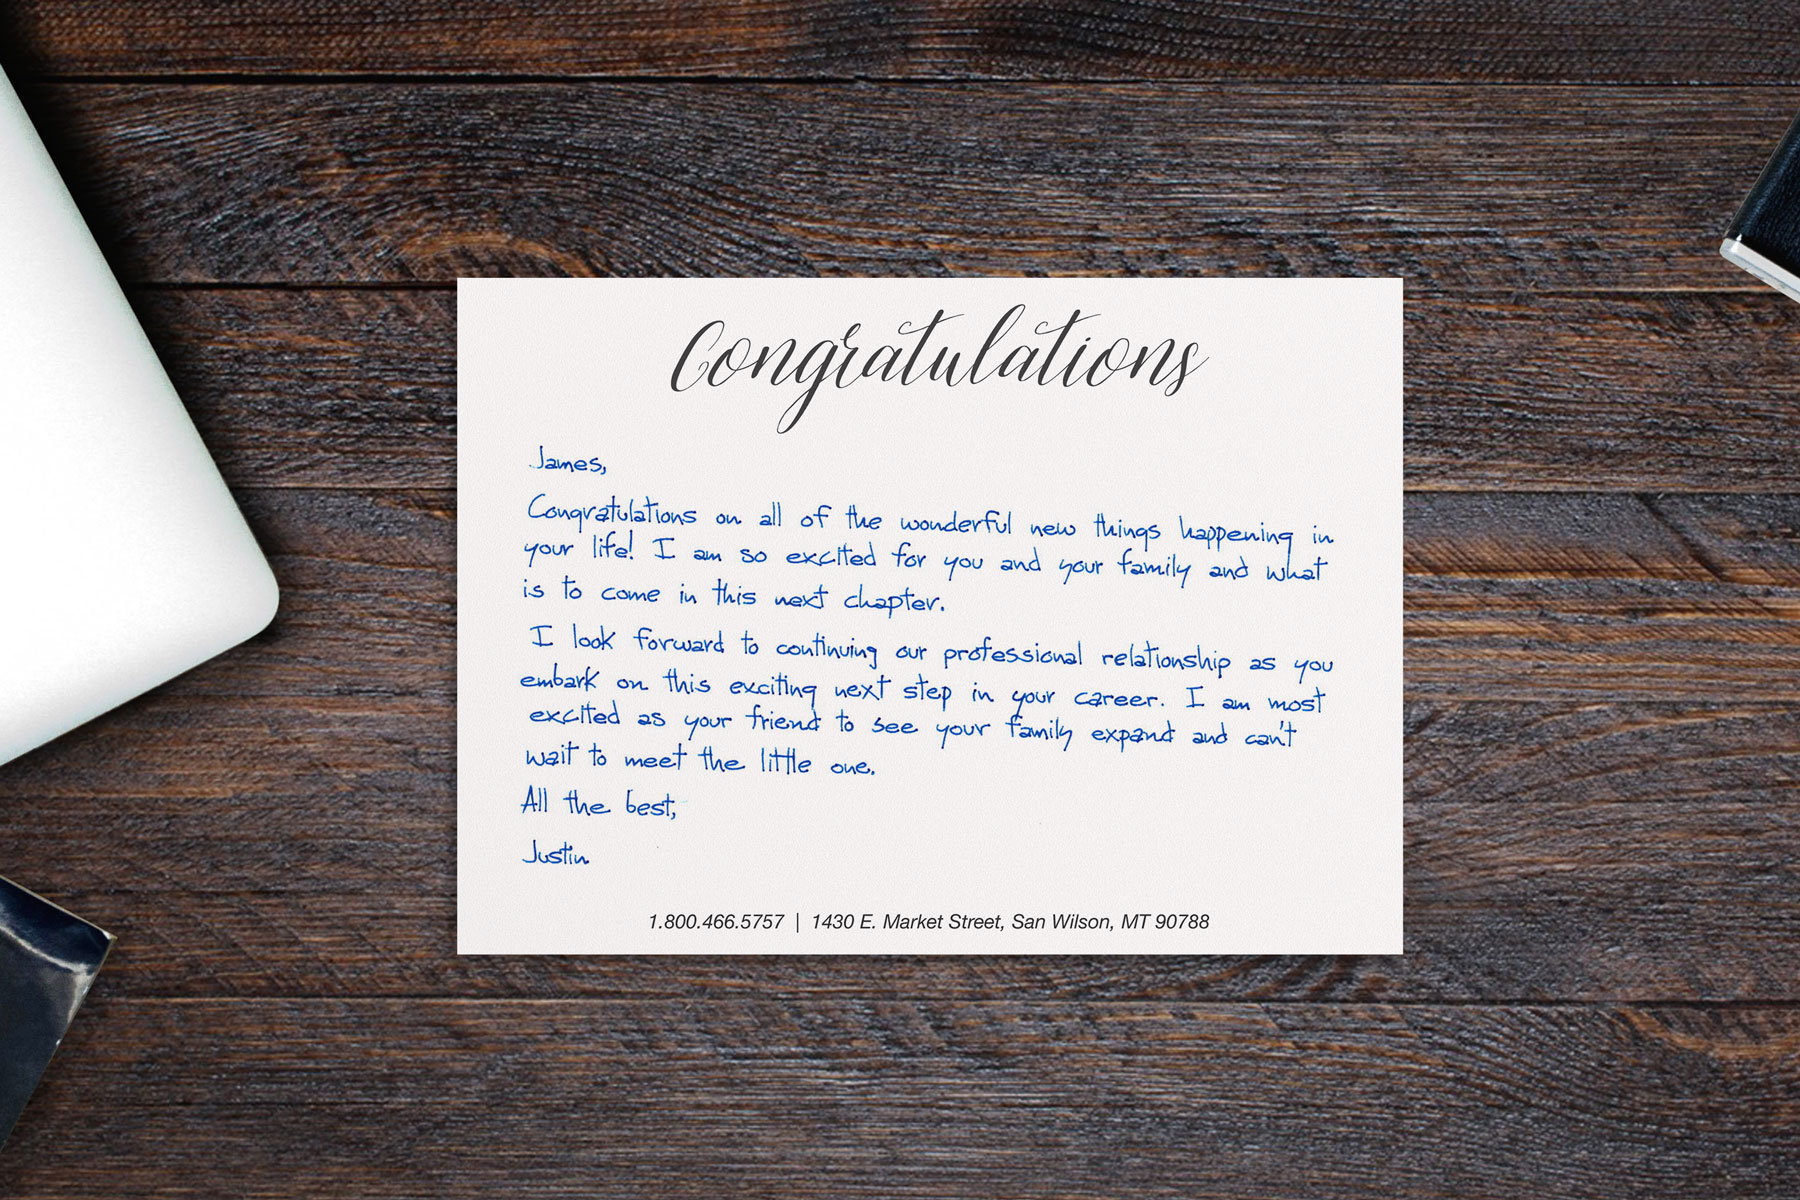 Congratulations
James,
Congratulations on all of the wonderful new things happening in
your life! I am so excited for you and your family and what
is to come in this next chapter.
I look forward to continuing our professional relationship as you
embark on this exciting next step in your career. I am most
excited as your friend to see your family expand and can't
wait to meet the little one.
All the best,
Justin
1.800.466.5757 | 1430 E. Market Street, San Wilson, MT 90788